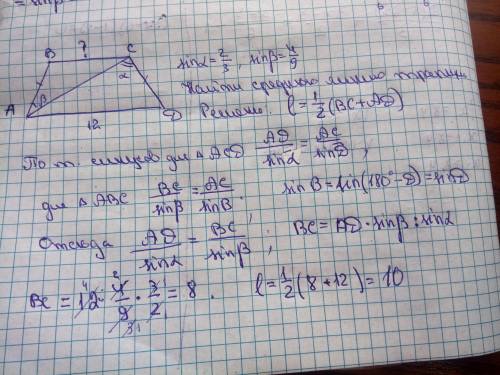 B ? C
A β α D
12
sinα = 2/3, sinβ = 4/9
Найти среднюю линию трапеции
Решение. l = 1/2 (BC + AD)
По т. синусов для △ACD AD/sinα = AC/sinD,
для △ABC BC/sinβ = AC/sinB. sin B = sin(180° - D) = sinD
Отсюда AD/sinα = BC/sinβ, BC = AD · sinβ : sinα
BC = 12 · 4/9 · 3/2 = 8. l = 1/2 (8 + 12) = 10